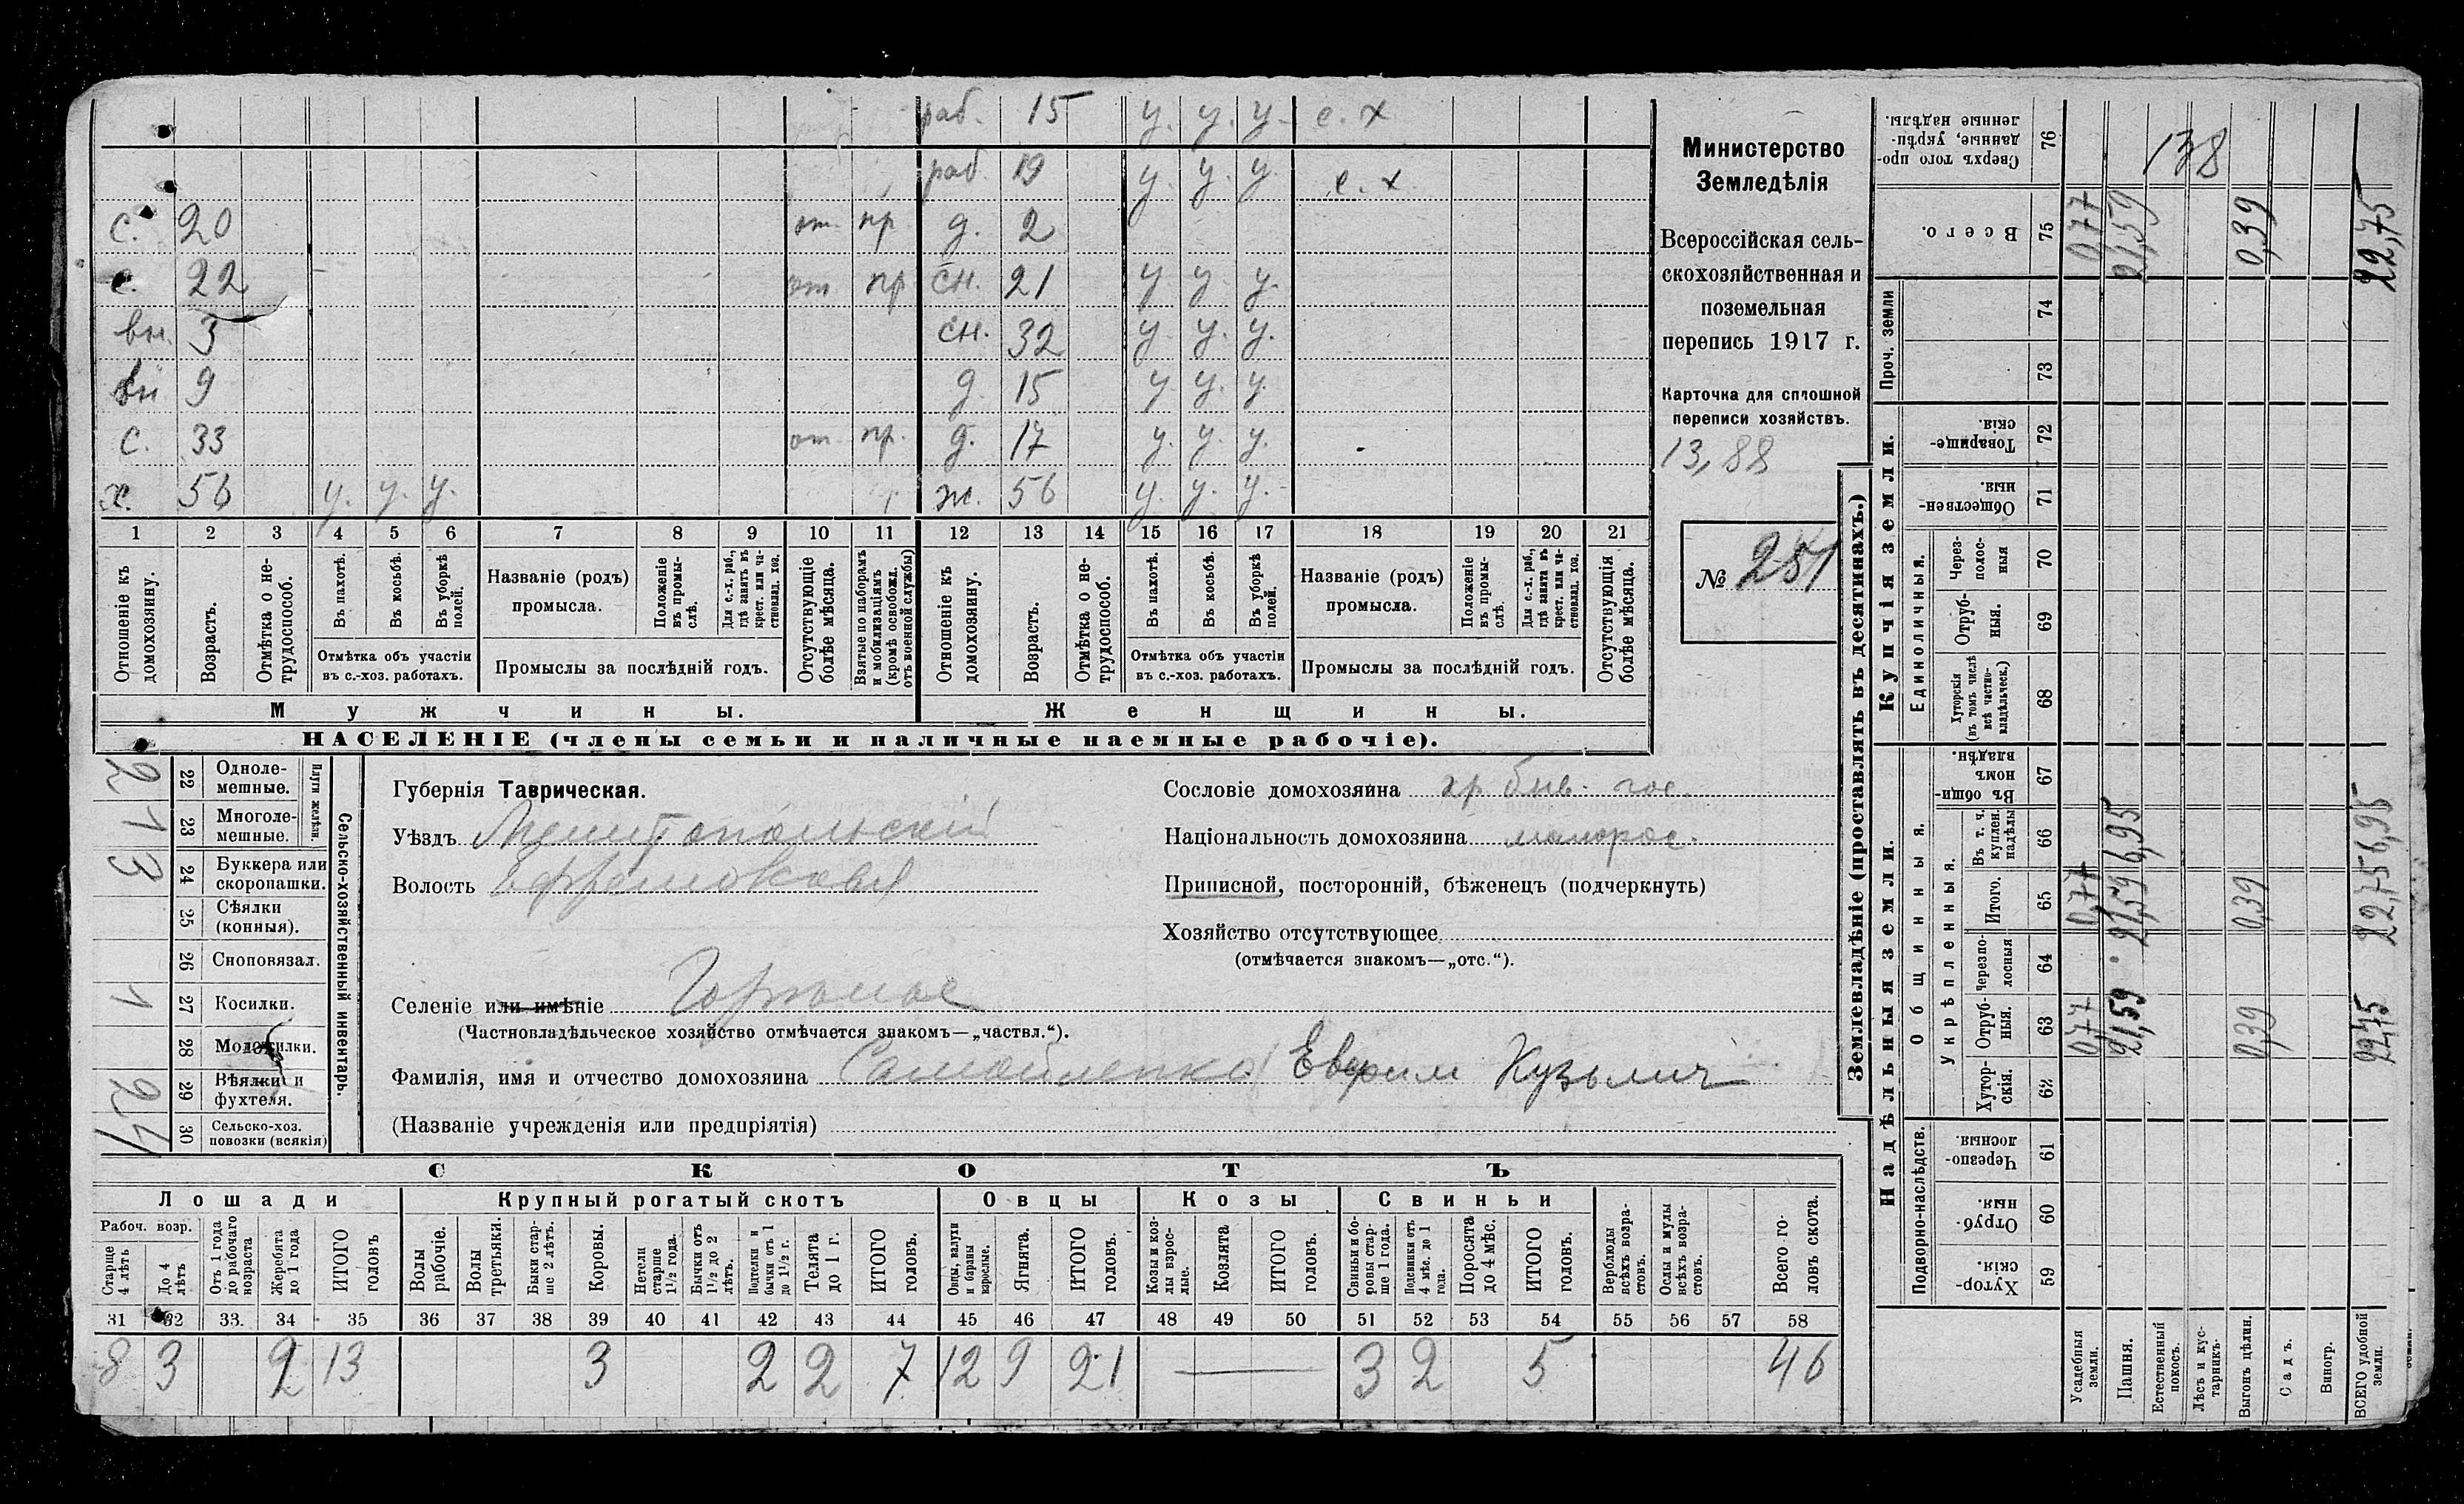 раб. 15 у. у. у. с. х
раб 19 у. у. у. с. х.
с. 20 от. пр д. 2
с. 22 от пр сн. 21 у у. у.
вн. 3 сн. 32 у. у. у.
вн 9 д. 15 у. у. у.
с. 33 от. пр. д. 17 у. у. у.
х. 56 у. у. у. ж. 56 у. у. у.
1 2 3 4 5 6 7 8 9 10 11 12 13 14 15 16 17 18 19 20 21
Отношеніе къ домохозяину.
Возрастъ.
Отмѣтка о не-
трудоспособ.
Въ пахотѣ.
Въ косьбѣ.
Въ уборкѣ
полей.
Отмѣтка объ участіи
въ с.-хоз. работахъ.
Названіе (родъ)
промысла.
Положеніе
въ промы-
слѣ.
Для с.-х. раб.,
гдѣ занятъ въ
крест. или ча-
стновлад. хоз.
Промыслы за послѣдній годъ.
Отсутствующіе
болѣе мѣсяца.
Взятые по наборамъ
и мобилизаціямъ
(кромѣ освобожд.
отъ военной службы)
Отношеніе къ
домохозяину.
Возрастъ.
Отмѣтка о не-
трудоспособ.
Въ пахотѣ.
Въ косьбѣ.
Въ уборкѣ
полей.
Отмѣтка объ участіи
въ с.-хоз. работахъ.
Названіе (родъ)
промысла.
Положеніе
въ промы-
слѣ.
Для с.-х. раб.,
гдѣ занята въ
крест. или ча-
стновлад. хоз.
Промыслы за послѣдній годъ.
Отсутствующія
болѣе мѣсяца.
Мужчины.
Женщины.
НАСЕЛЕНІЕ (члены семьи и наличные наемные рабочіе).
Министерство
Земледѣлія
Всероссійская сель-
скохозяйственная и
поземельная
перепись 1917 г.
Карточка для сплошной
переписи хозяйствъ.
13,88
№ 251
Сельско-хозяйственный инвентарь.
Плуги желѣзн.
22 Одноле-
мешные. 2
23 Многоле-
мешные. 1
24 Буккера или
скоропашки. 3
25 Сѣялки
(конныя).
26 Сноповязал.
27 Косилки. 1
28 Молотилки.
29 Вѣялки и
фухтеля.
30 Сельско-хоз.
повозки (всякія)
Губернія Таврическая.
Уѣздъ Мелитопольскій
Волость Ефремовская
Селеніе или имѣніе
(Частновладѣльческое хозяйство отмѣчается знакомъ—„частвл.“).
Фамилія, имя и отчество домохозяина Самойленко Евфрим Кузьмич
(Названіе учрежденія или предпріятія)
Сословіе домохозяина кр. быв. гос.
Національность домохозяина малорос.
Приписной, посторонній, бѣженецъ (подчеркнуть)
Хозяйство отсутствующее
(отмѣчается знакомъ—„отс.“).
СКОТЪ
Лошади Крупный рогатый скотъ Овцы Козы Свиньи
Рабоч. возр.
Старше
4 лѣтъ
До 4
лѣтъ
Отъ 1 года
до рабочаго
возраста
Жеребята
до 1 года
ИТОГО
головъ
Волы
рабочіе.
Волы
третьяки.
Быки стар-
ше 2 лѣтъ.
Коровы.
Нетели
старше
1½ года.
Бычки отъ
1½ до 2
лѣтъ.
Подтелки и
бычки отъ 1
до 1½ г.
Телята
до 1 г.
ИТОГО
головъ.
Овцы, валухи
и бараны
взрослые.
Ягнята.
ИТОГО
головъ.
Козы и коз-
лы взрос-
лые.
Козлята
ИТОГО
головъ.
Свиньи и бо-
ровы стар-
ше 1 года.
Подсвинки отъ
4 мѣс. до 1
года.
Поросята
до 4 мѣс.
ИТОГО
головъ.
Верблюды
всѣхъ возра-
стовъ.
Ослы и мулы
всѣхъ возра-
стовъ.
Всего го-
ловъ скота.
31 32 33 34 35 36 37 38 39 40 41 42 43 44 45 46 47 48 49 50 51 52 53 54 55 56 57 58
8 3 2 13 3 2 2 7 12 9 21 — 3 2 5 46
Землевладѣніе (проставлять въ десятинахъ.)
Надѣльныя земли. Купчія земли.
Проч. земли
Подворно-наслѣдств.
Общинныя.
Укрѣпленныя.
Единоличныя.
Сверхъ того про-
данные, укрѣп-
ленные надѣлы. 76
Всего. 75
74
73
Товарище-
скія. 72
Обществен-
ныя. 71
Через-
полос-
ныя 70
Отруб-
ныя. 69
Хуторскія
(въ томъ числѣ
всѣ частно-
владѣльческ.) 68
Въ общин-
номъ
владѣн. 67
Въ т. ч.
куплен.
надѣлы 66
Итого. 65
Черезпо-
лосныя 64
Отруб-
ныя. 63
Хутор-
скія. 62
Черезпо-
лосныя. 61
Отруб-
ныя. 60
Хутор-
скія. 59
Усадебныя
земли. 0,77 0,77 0,77
Пашня. 21,59 21,59 6,95 21,59
Естественный
покосъ.
Лѣсъ и кус-
тарникъ.
Выгонъ цѣлин. 0,39 0,39 0,39
Садъ.
Виногр.
ВСЕГО удобной
земли. 22,75 22,75 6,95 22,75
138